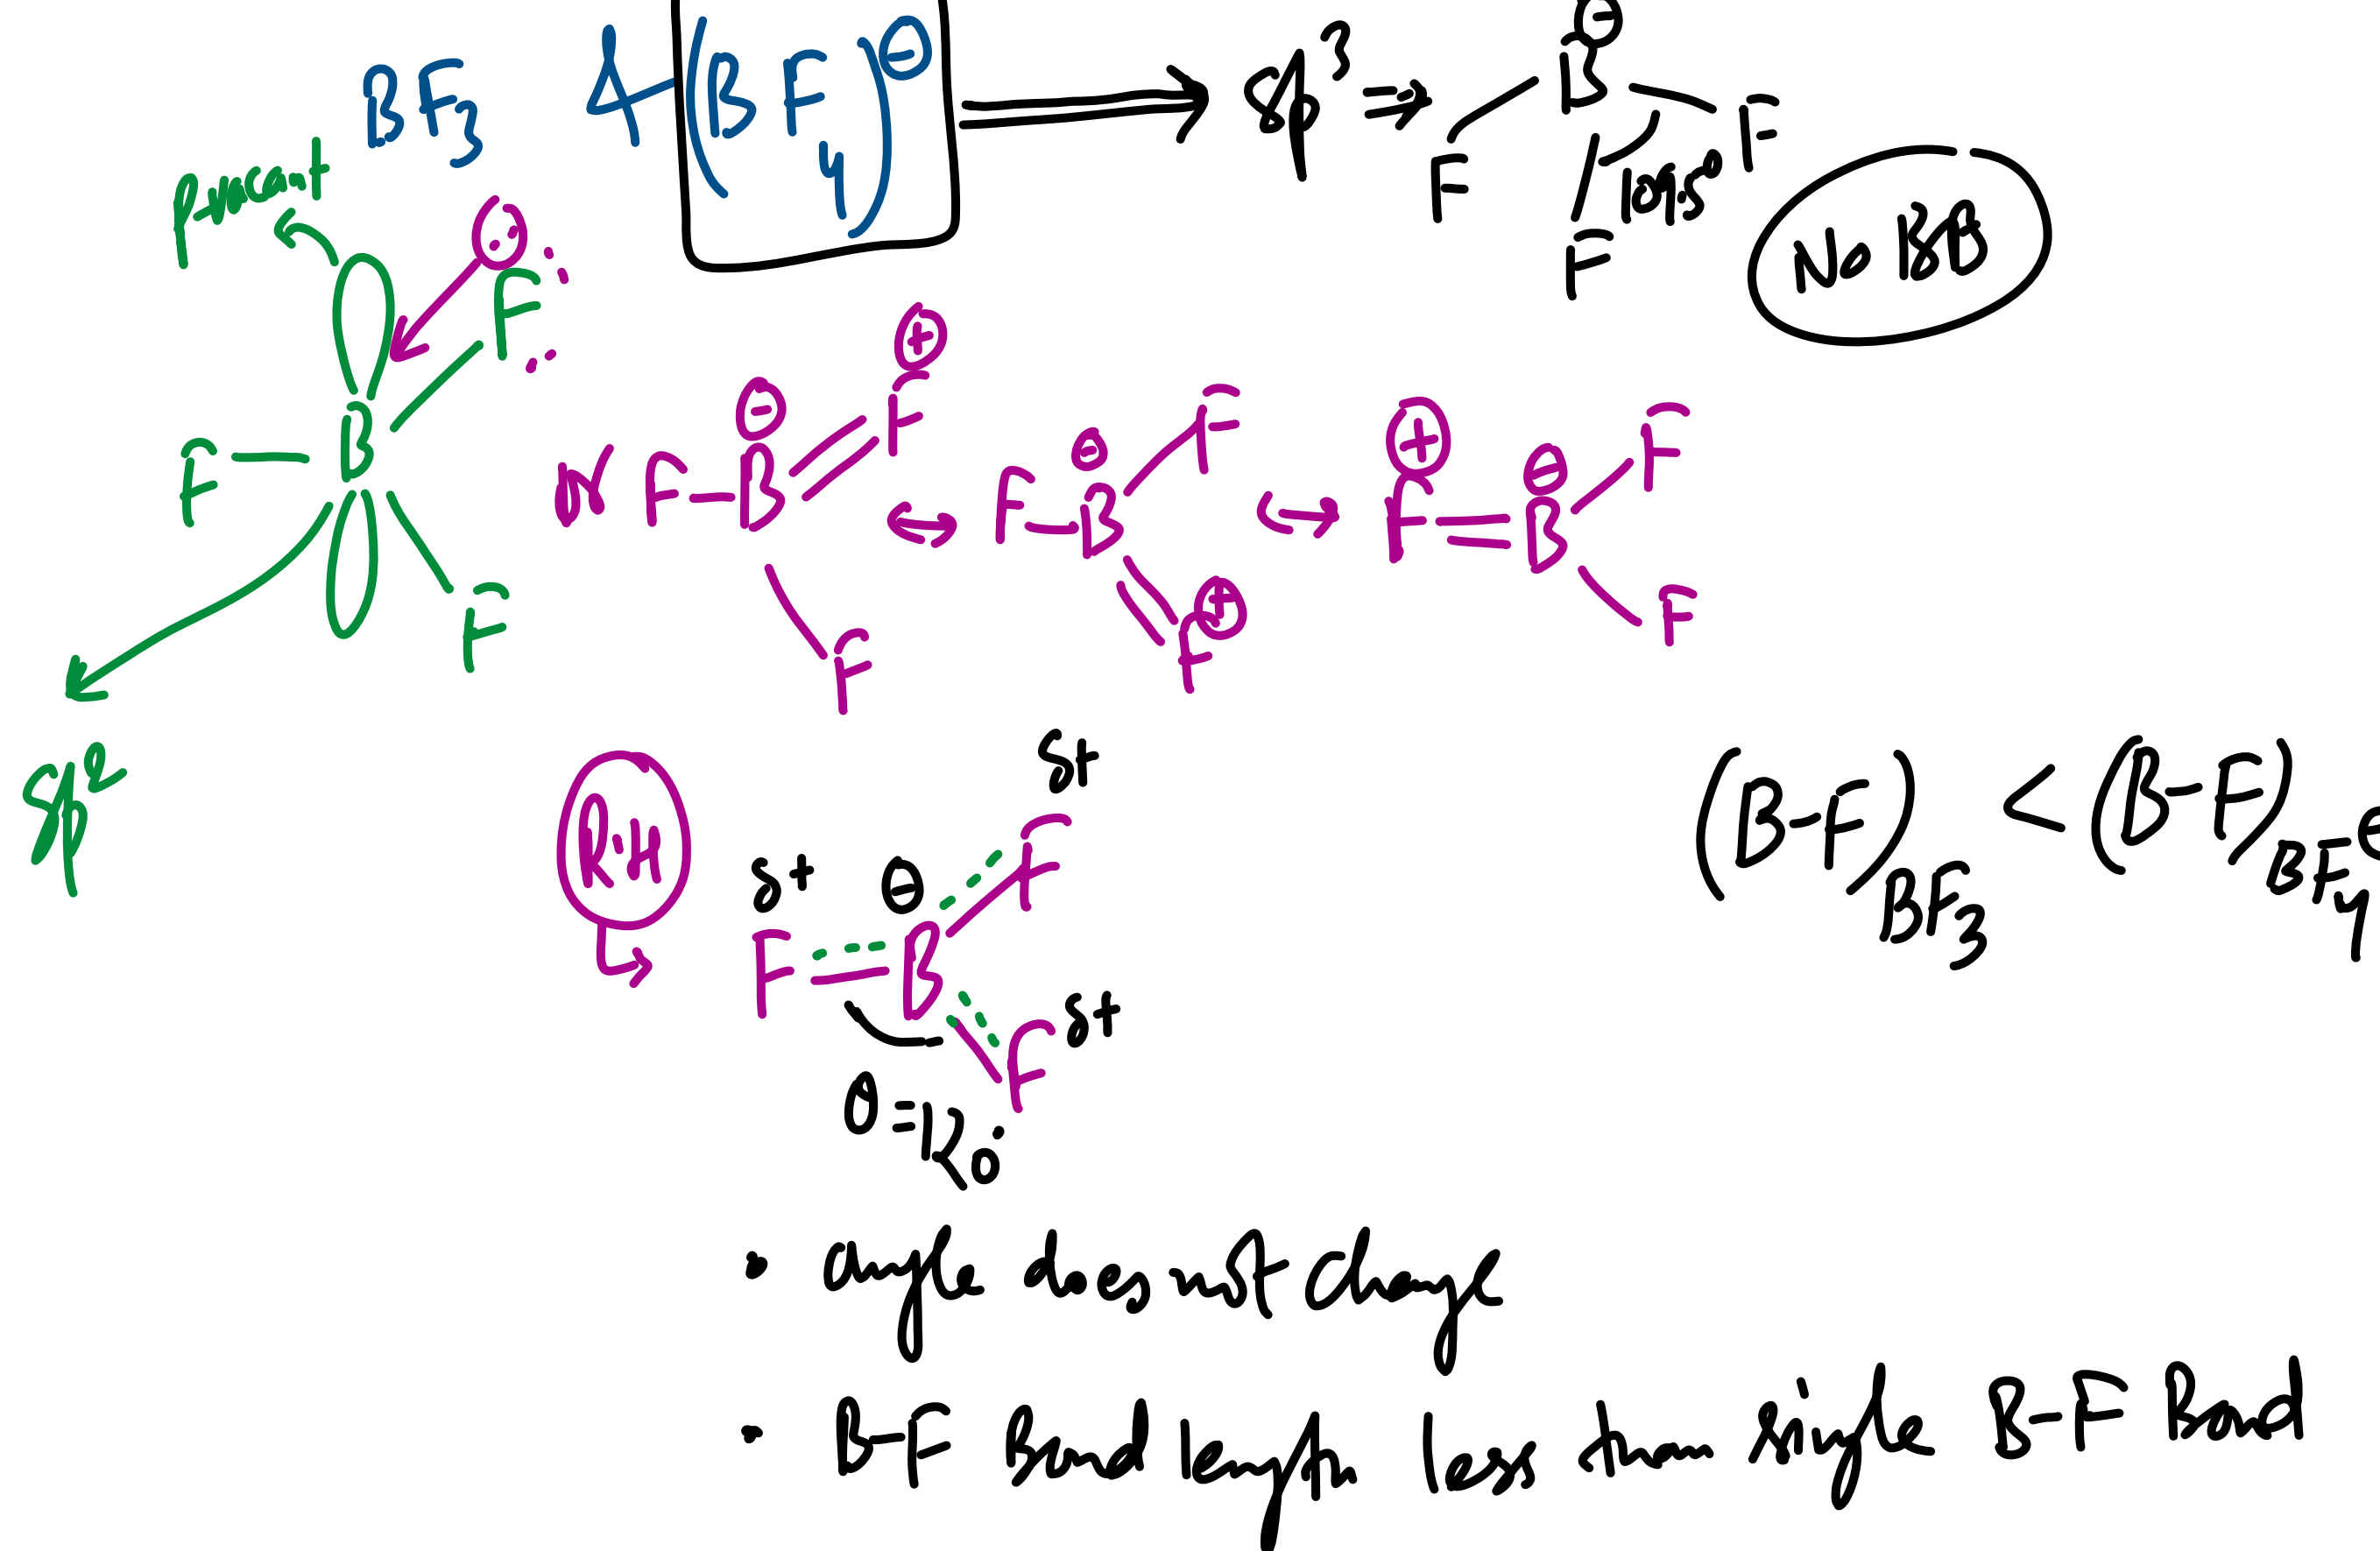 BF3 & (BF4)⊖ ⟹ sp³ ⇒
B⊖
F F F
No BB
vacant
F B F F
sp²
F-B⊖=F⊕ F ↔ F-B⊖ F =F⊕ ↔ F⊕=B⊖ F F
R.H
δ+ F B⊖ F δ+ F δ+
θ = 120°
(B-F)BF3 < (B-F)BF4⊖
* angle does not change
* B-F Bond length less than single B-F Bond